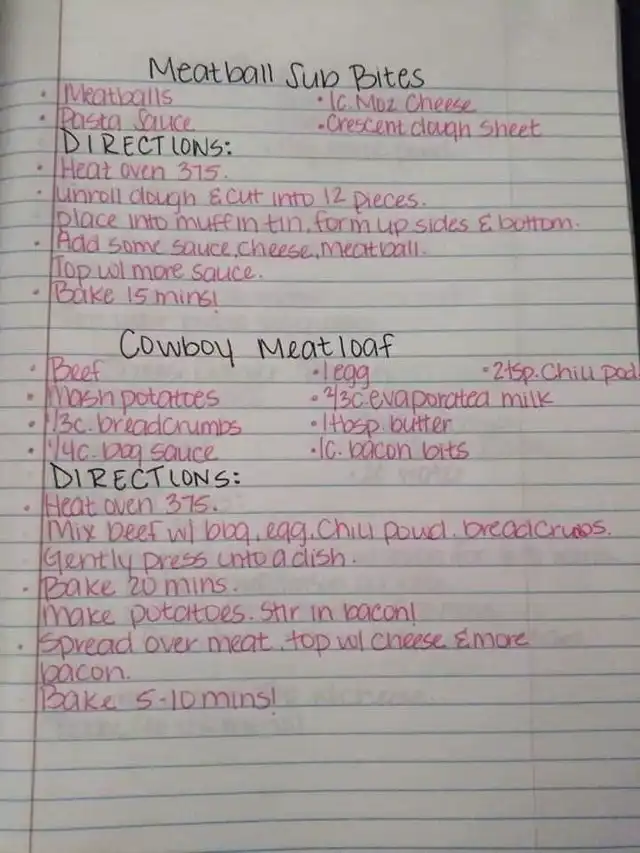 Meatball Sub Bites
• Meatballs • 1c. Moz Cheese
• Pasta Sauce • Crescent dough sheet
DIRECTIONS:
• Heat oven 375.
• Unroll dough & cut into 12 pieces.
place into muffin tin, form up sides & bottom.
• Add some sauce, cheese, meatball.
Top w/ more sauce.
• Bake 15 mins!
Cowboy Meatloaf
• Beef • 1 egg • 2 tsp. Chili pod.
• Mash potatoes • 2/3c. evaporated milk
• 1/3c. breadcrumbs • 1 tbsp. butter
• 1/4c. bbq sauce • 1c. bacon bits
DIRECTIONS:
• Heat oven 375.
Mix beef w/ bbq, egg, chili powd. breadcrumbs.
Gently press into a dish.
• Bake 20 mins.
Make potatoes. Stir in bacon!
• Spread over meat, top w/ cheese & more
bacon.
Bake 5-10 mins!